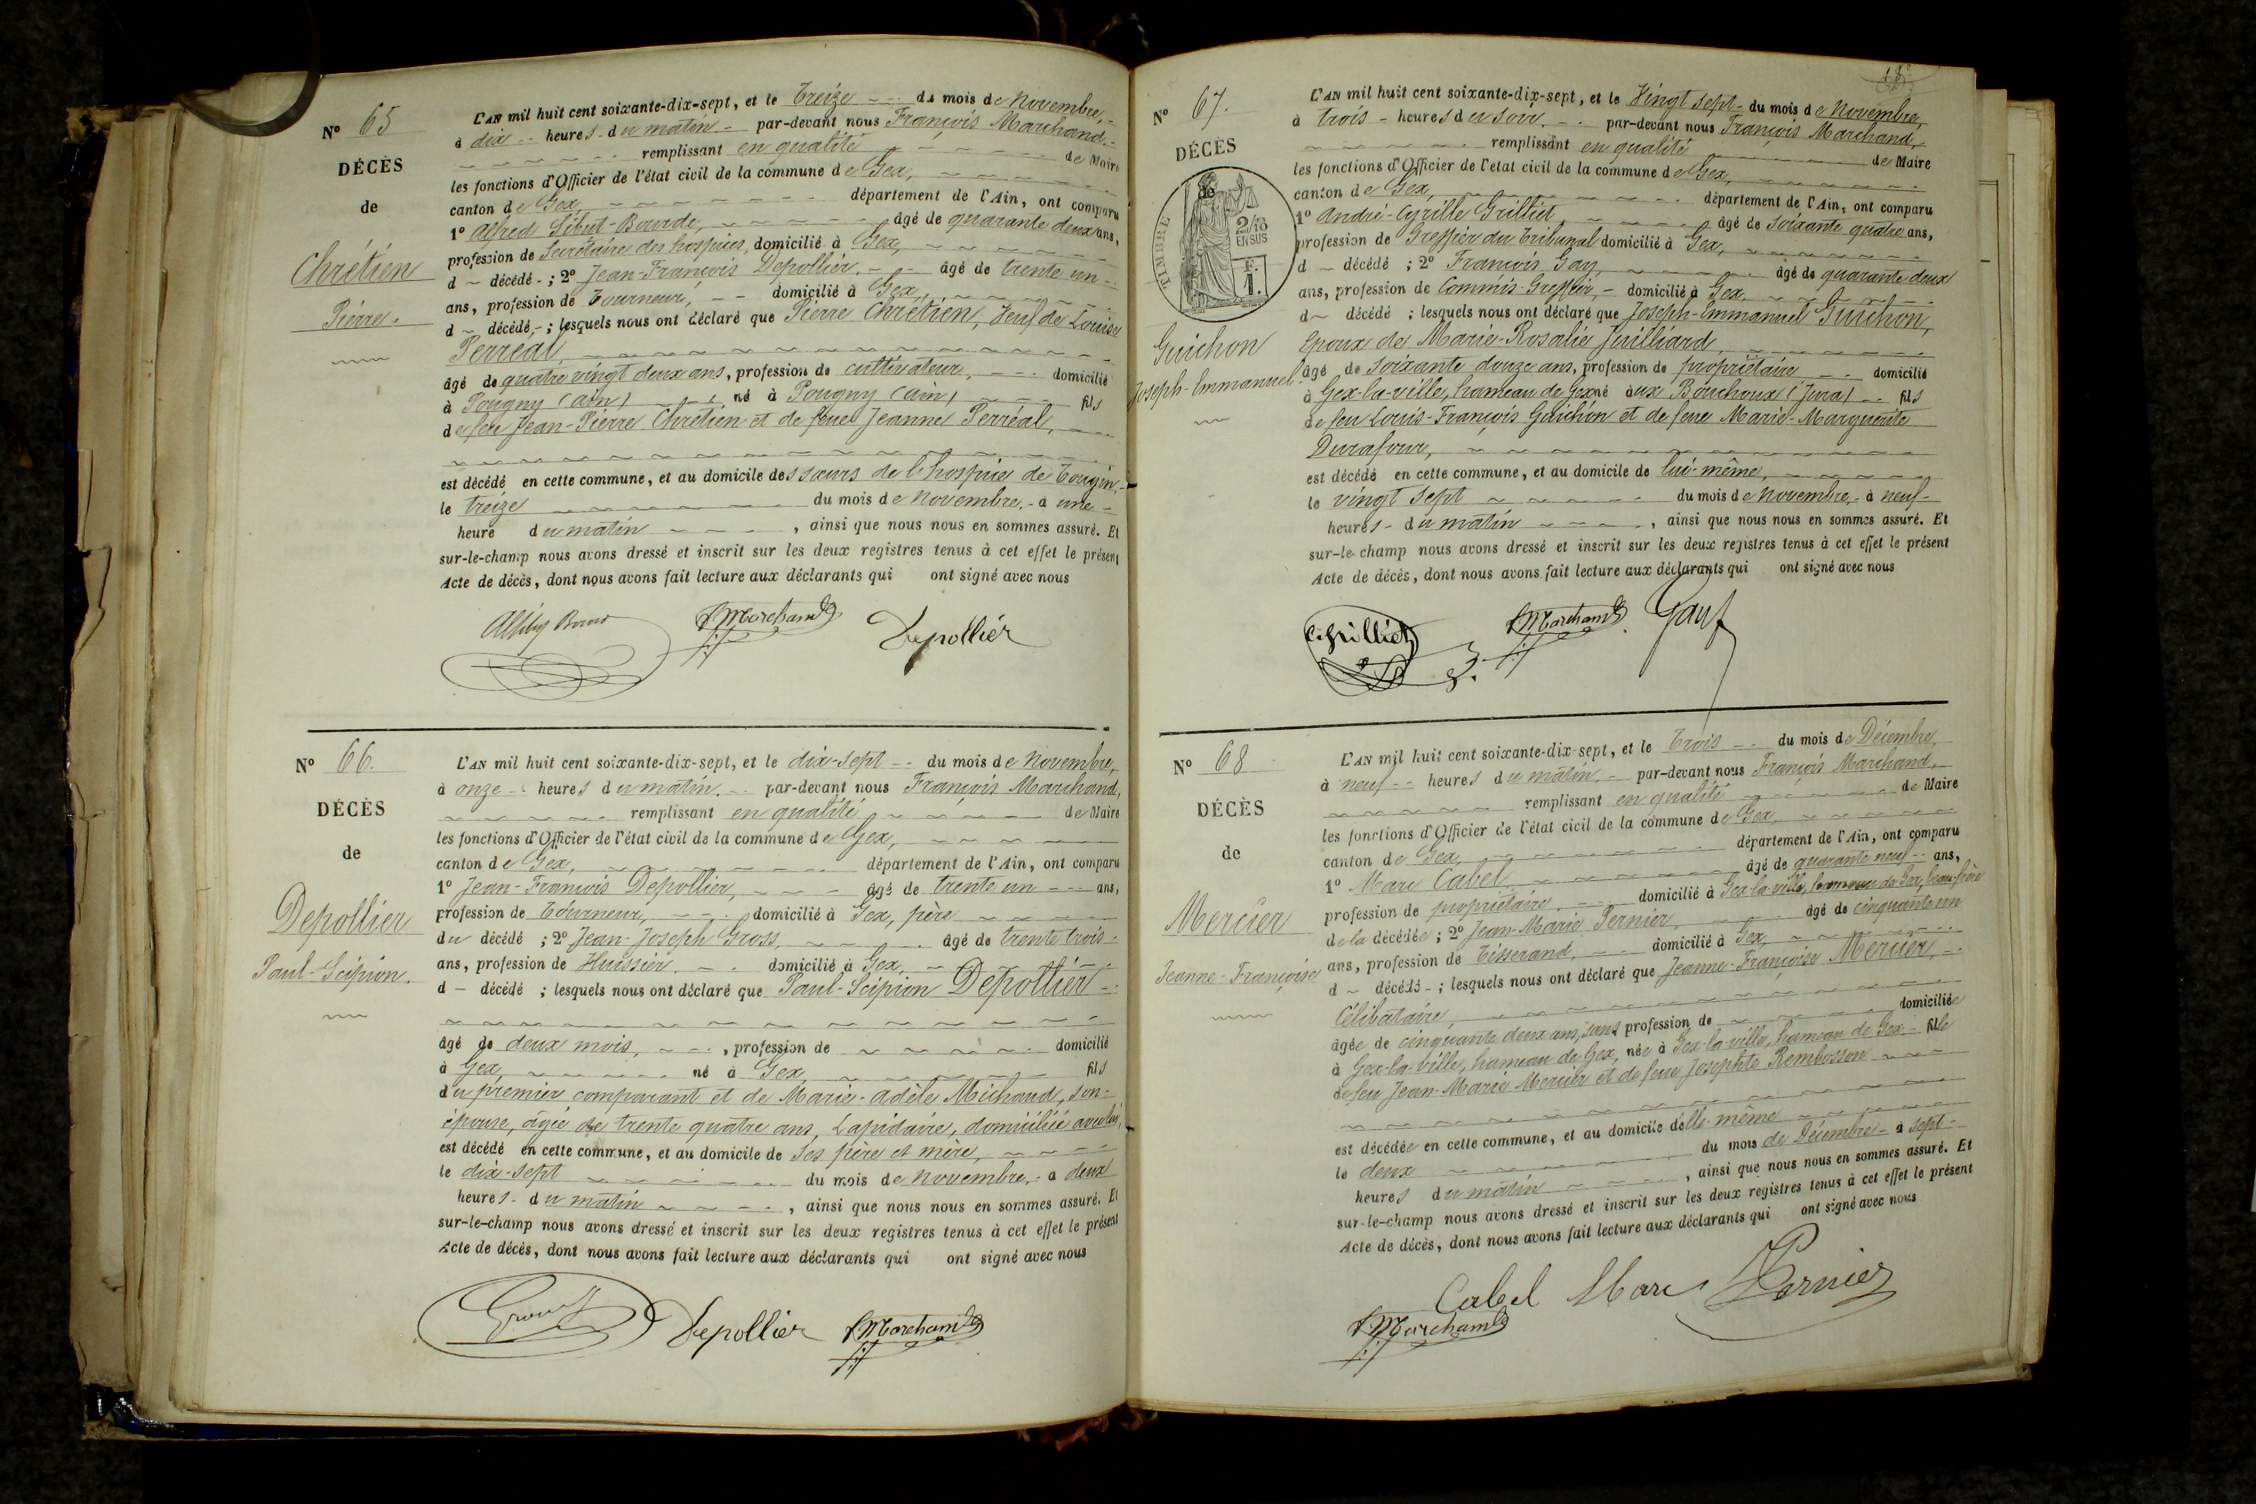 Nº 65
DÉCÈS
de
Chrétien
Pierre.
L'AN mil huit cent soixante-dix-sept, et le Treize du mois de Novembre,
à dix heures du matin par-devant nous François Marchand
remplissant en qualité de Maire
les fonctions d'Officier de l'état civil de la commune de Gex,
canton de Gex, département de l'Ain, ont comparu
1º Alfred Sibut-Bourde, âgé de quarante deux ans,
profession de Secrétaire des hospices, domicilié à Gex,
d décédé ; 2º Jean-François Depollier. âgé de trente un
ans, profession de Tourneur, domicilié à Gex,
d décédé ; lesquels nous ont déclaré que Pierre Chrétien, Veuf de Louise
Perréal,
âgé de quatre vingt deux ans, profession de cultivateur, domicilié
à Pougny (ain) né à Pougny (ain) fils
de feu Jean-Pierre Chrétien et de feue Jeanne Perréal,
est décédé en cette commune, et au domicile des sœurs de l'hospice de Tougin,
le treize du mois de Novembre, à une
heure du matin, ainsi que nous nous en sommes assuré. Et
sur-le-champ nous avons dressé et inscrit sur les deux registres tenus à cet effet le présent
Acte de décès, dont nous avons fait lecture aux déclarants qui ont signé avec nous
Marchand Depollier
Nº 66.
DÉCÈS
de
Depollier
Paul-Scipion.
L'AN mil huit cent soixante-dix-sept, et le dix-sept du mois de Novembre,
à onze heures du matin. par-devant nous François Marchand,
remplissant en qualité de Maire
les fonctions d'Officier de l'état civil de la commune de Gex,
canton de Gex, département de l'Ain, ont comparu
1º Jean-François Depollier, âgé de trente un ans,
profession de Tourneur, domicilié à Gex, père
du décédé ; 2º Jean-Joseph Gross, âgé de trente trois
ans, profession de Huissier. domicilié à Gex,
d décédé ; lesquels nous ont déclaré que Paul-Scipion Depollier
âgé de deux mois, profession de domicilié
à Gex, né à Gex, fils
du premier comparant et de Marie-adèle Michaud, son
épouse, âgée de trente quatre ans, Lapidaire, domiciliée avec lui,
est décédé en cette commune, et au domicile de Ses père et mère,
le dix-sept du mois de Novembre, à deux
heures du matin, ainsi que nous nous en sommes assuré. Et
sur-le-champ nous avons dressé et inscrit sur les deux registres tenus à cet effet le présent
Acte de décès, dont nous avons fait lecture aux déclarants qui ont signé avec nous
Gross Depollier Marchand
Nº 67.
DÉCÈS
de
TIMBRE
2/10
EN SUS
F.
1.
Guichon
Joseph-Emmanuel.
L'AN mil huit cent soixante-dix-sept, et le Vingt sept du mois de Novembre,
à trois heures du soir. par-devant nous François Marchand,
remplissant en qualité de Maire
les fonctions d'Officier de l'état civil de la commune de Gex,
canton de Gex, département de l'Ain, ont comparu
1º André-Cyrille Grilliet, âgé de soixante quatre ans,
profession de Greffier du Tribunal domicilié à Gex,
d décédé ; 2º François Gay, âgé de quarante deux
ans, profession de Commis-Greffier, domicilié à Gex,
d décédé ; lesquels nous ont déclaré que Joseph-Emmanuel Guichon,
Epoux de Marie-Rosalie Juilliard,
âgé de soixante douze ans, profession de propriétaire domicilié
à Gex-la-ville, hameau de Gex né aux Bouchoux (Jura) fils
de feu Louis-François Guichon et de feue Marie-Marguerite
Durafour,
est décédé en cette commune, et au domicile de lui-même,
le vingt sept du mois de Novembre, à neuf
heures du matin, ainsi que nous nous en sommes assuré. Et
sur-le-champ nous avons dressé et inscrit sur les deux registres tenus à cet effet le présent
Acte de décès, dont nous avons fait lecture aux déclarants qui ont signé avec nous
Grilliet Marchand Gay
Nº 68
DÉCÈS
de
Mercier
Jeanne-Françoise
L'AN mil huit cent soixante-dix-sept, et le Trois du mois de Décembre,
à neuf heures du matin par-devant nous François Marchand,
remplissant en qualité de Maire
les fonctions d'Officier de l'état civil de la commune de Gex,
canton de Gex, département de l'Ain, ont comparu
1º Marc Cabel âgé de quarante neuf ans,
profession de propriétaire. domicilié à Gex-la-ville, hameau de Gex, beau-frère
de la décédée ; 2º Jean-Marie Pernier, âgé de cinquante un
ans, profession de Tisserand, domicilié à Gex,
d décédé ; lesquels nous ont déclaré que Jeanne-Françoise Mercier,
Célibataire,
âgée de cinquante deux ans, sans profession de domiciliée
à Gex-la-ville, hameau de Gex, née à Gex-la-ville, hameau de Gex fille
de feu Jean-Marie Mercier et de feue Josephte Rembosson
est décédée en cette commune, et au domicile d'elle-même
le deux du mois de Décembre à sept
heures du matin, ainsi que nous nous en sommes assuré. Et
sur-le-champ nous avons dressé et inscrit sur les deux registres tenus à cet effet le présent
Acte de décès, dont nous avons fait lecture aux déclarants qui ont signé avec nous
Cabel Marc Pernier
Marchand